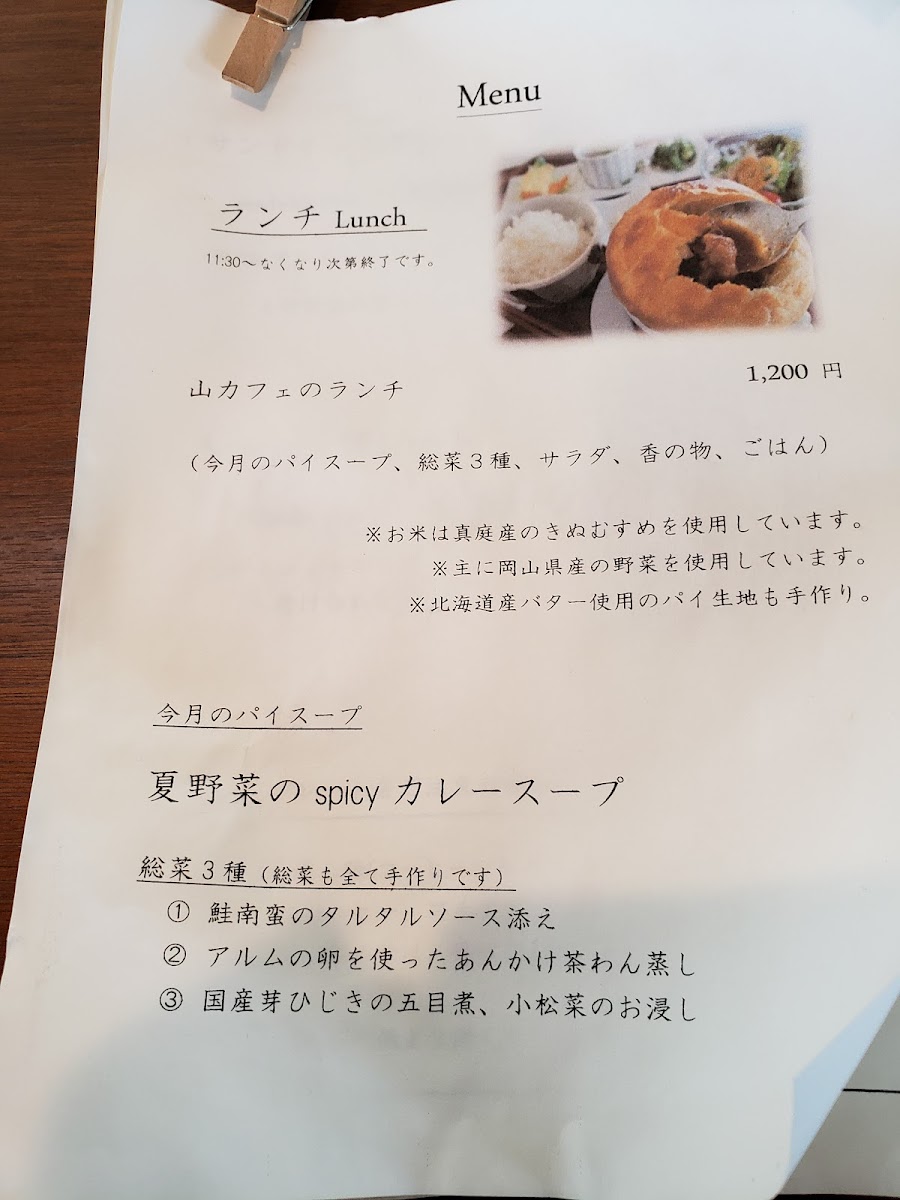 Menu
ランチ Lunch
11:30～なくなり次第終了です。
山カフェのランチ
1,200 円
（今月のパイスープ、総菜３種、サラダ、香の物、ごはん）
※お米は真庭産のきぬむすめを使用しています。
※主に岡山県産の野菜を使用しています。
※北海道産バター使用のパイ生地も手作り。
今月のパイスープ
夏野菜の spicy カレースープ
総菜３種（総菜も全て手作りです）
① 鮭南蛮のタルタルソース添え
② アルムの卵を使ったあんかけ茶わん蒸し
③ 国産芽ひじきの五目煮、小松菜のお浸し